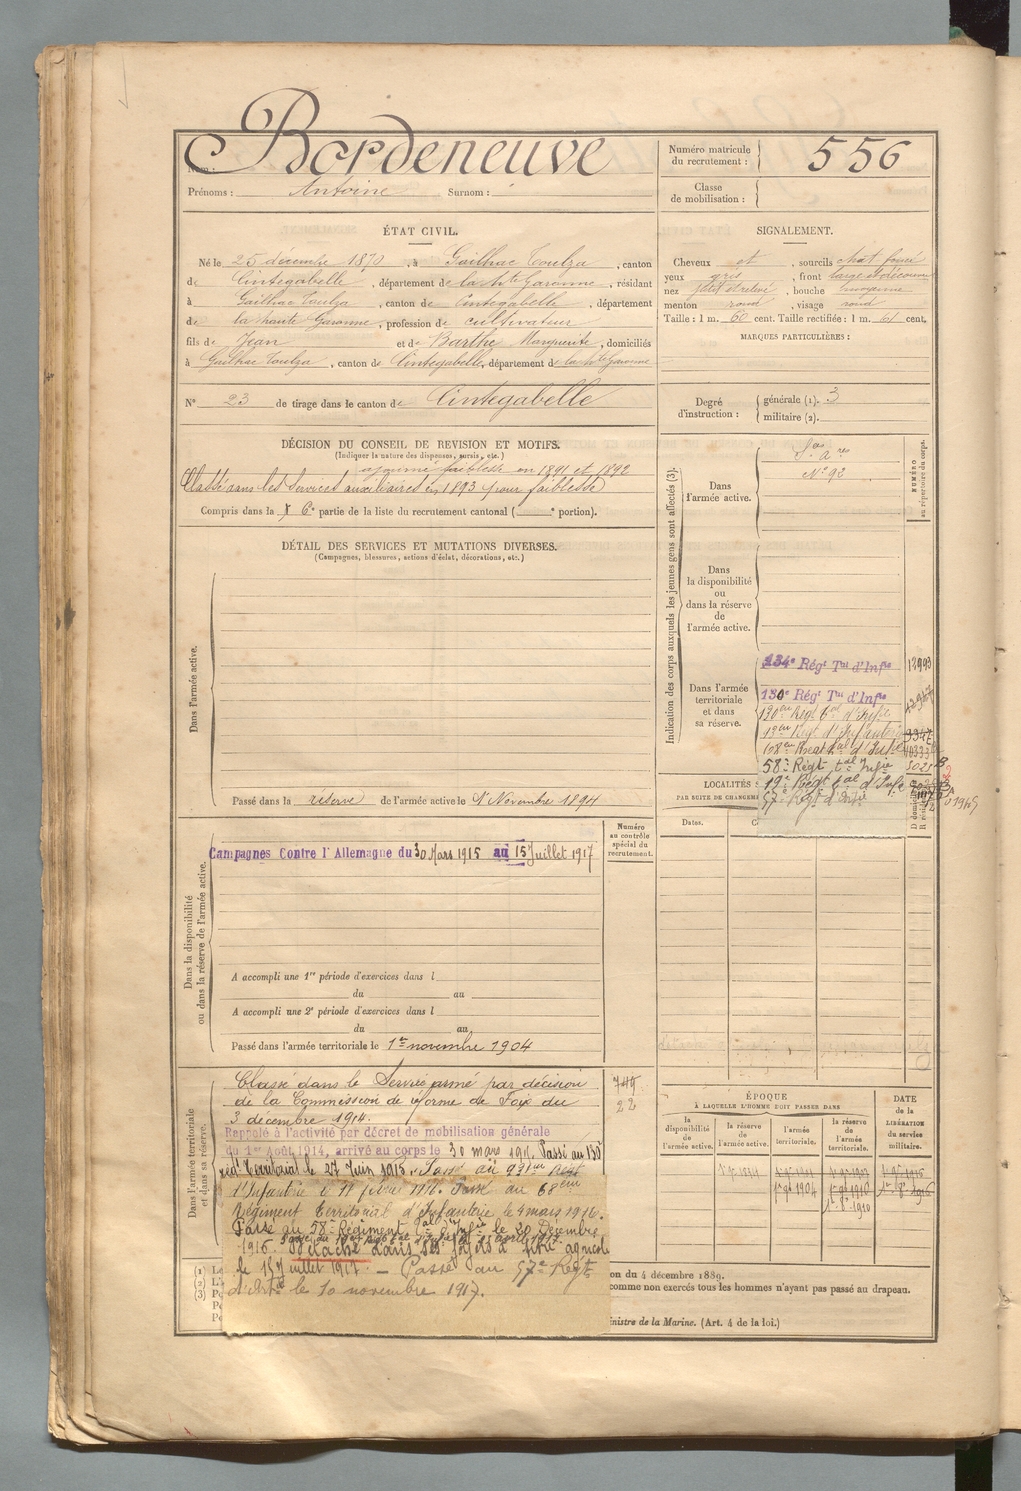 Nom : Bordeneuve
Prénoms : Antoine Surnom :
Numéro matricule du recrutement : 556
Classe de mobilisation :
ÉTAT CIVIL.
Né le 25 décembre 1870, à Gailhac Toulza, canton
de Cintegabelle, département de la Hte Garonne, résidant
à Gailhac Toulza, canton de Cintegabelle, département
de la haute Garonne, profession de cultivateur
fils de Jean et de Barthe Marguerite, domiciliés
à Gailhac Toulza, canton de Cintegabelle, département de la Hte Garonne
N° 23 de tirage dans le canton de Cintegabelle
SIGNALEMENT.
Cheveux et, sourcils chat foncé
yeux gris, front large et découvert
nez petit et relevé, bouche moyenne
menton rond, visage rond
Taille : 1 m. 60 cent. Taille rectifiée : 1 m. 61 cent.
MARQUES PARTICULIÈRES :
Degré d'instruction : générale (1). 3
militaire (2).
DÉCISION DU CONSEIL DE REVISION ET MOTIFS.
(Indiquer la nature des dispenses, sursis, etc.)
ajourné faiblesse en 1891 et 1892
Classé dans les services auxiliaires en 1893 (pour faiblesse)
Compris dans la 6e partie de la liste du recrutement cantonal ( e portion).
DÉTAIL DES SERVICES ET MUTATIONS DIVERSES.
(Campagnes, blessures, actions d'éclat, décorations, etc.)
Dans l'armée active.
Passé dans la réserve de l'armée active le 1er Novembre 1894
Indication des corps auxquels les jeunes gens sont affectés (3).
NUMÉRO au répertoire du corps.
Dans l'armée active.
N° 92
Dans la disponibilité ou dans la réserve de l'armée active.
Dans l'armée territoriale et dans sa réserve.
134e Régt Tal d'Infie 12993
130e Régt Tal d'Infie
58e Régt tal Infie
57e Régt d'Artie
LOCALITÉS
PAR SUITE DE CHANGEME
Dates.
Dans la disponibilité ou dans la réserve de l'armée active.
Numéro au contrôle spécial du recrutement.
Campagnes Contre l'Allemagne du 30 Mars 1915 au 15 Juillet 1917
A accompli une 1re période d'exercices dans l
du au
A accompli une 2e période d'exercices dans l
du au
Passé dans l'armée territoriale le 1er novembre 1904
Dans l'armée territoriale et dans sa réserve.
Classé dans le Service armé par décision
de la Commission de réforme de Foix du
3 décembre 1914.
Rappelé à l'activité par décret de mobilisation générale
du 1er août 1914, arrivé au corps le 30 mars 1915. Passé au 130e
régt Territorial le 27 Juin 1915. Passé au
d'Infanterie le 11 février 1916. Passé au 68em
Régiment Territorial d'Infanterie le 4 mars 1916.
Passé au 58e Régiment tal d'Infie le 20 Décembre
1916. Détaché dans ses foyers à titre agricole
le 15 Juillet 1917. — Passé au 57e Régt
d'Artie le 10 novembre 1917.
ÉPOQUE
À LAQUELLE L'HOMME DOIT PASSER DANS
la disponibilité de l'armée active.
la réserve de l'armée active.
l'armée territoriale.
la réserve de l'armée territoriale.
DATE de la LIBÉRATION du service militaire.
on du 4 décembre 1889.
comme non exercés tous les hommes n'ayant pas passé au drapeau.
inistre de la Marine. (Art. 4 de la loi.)